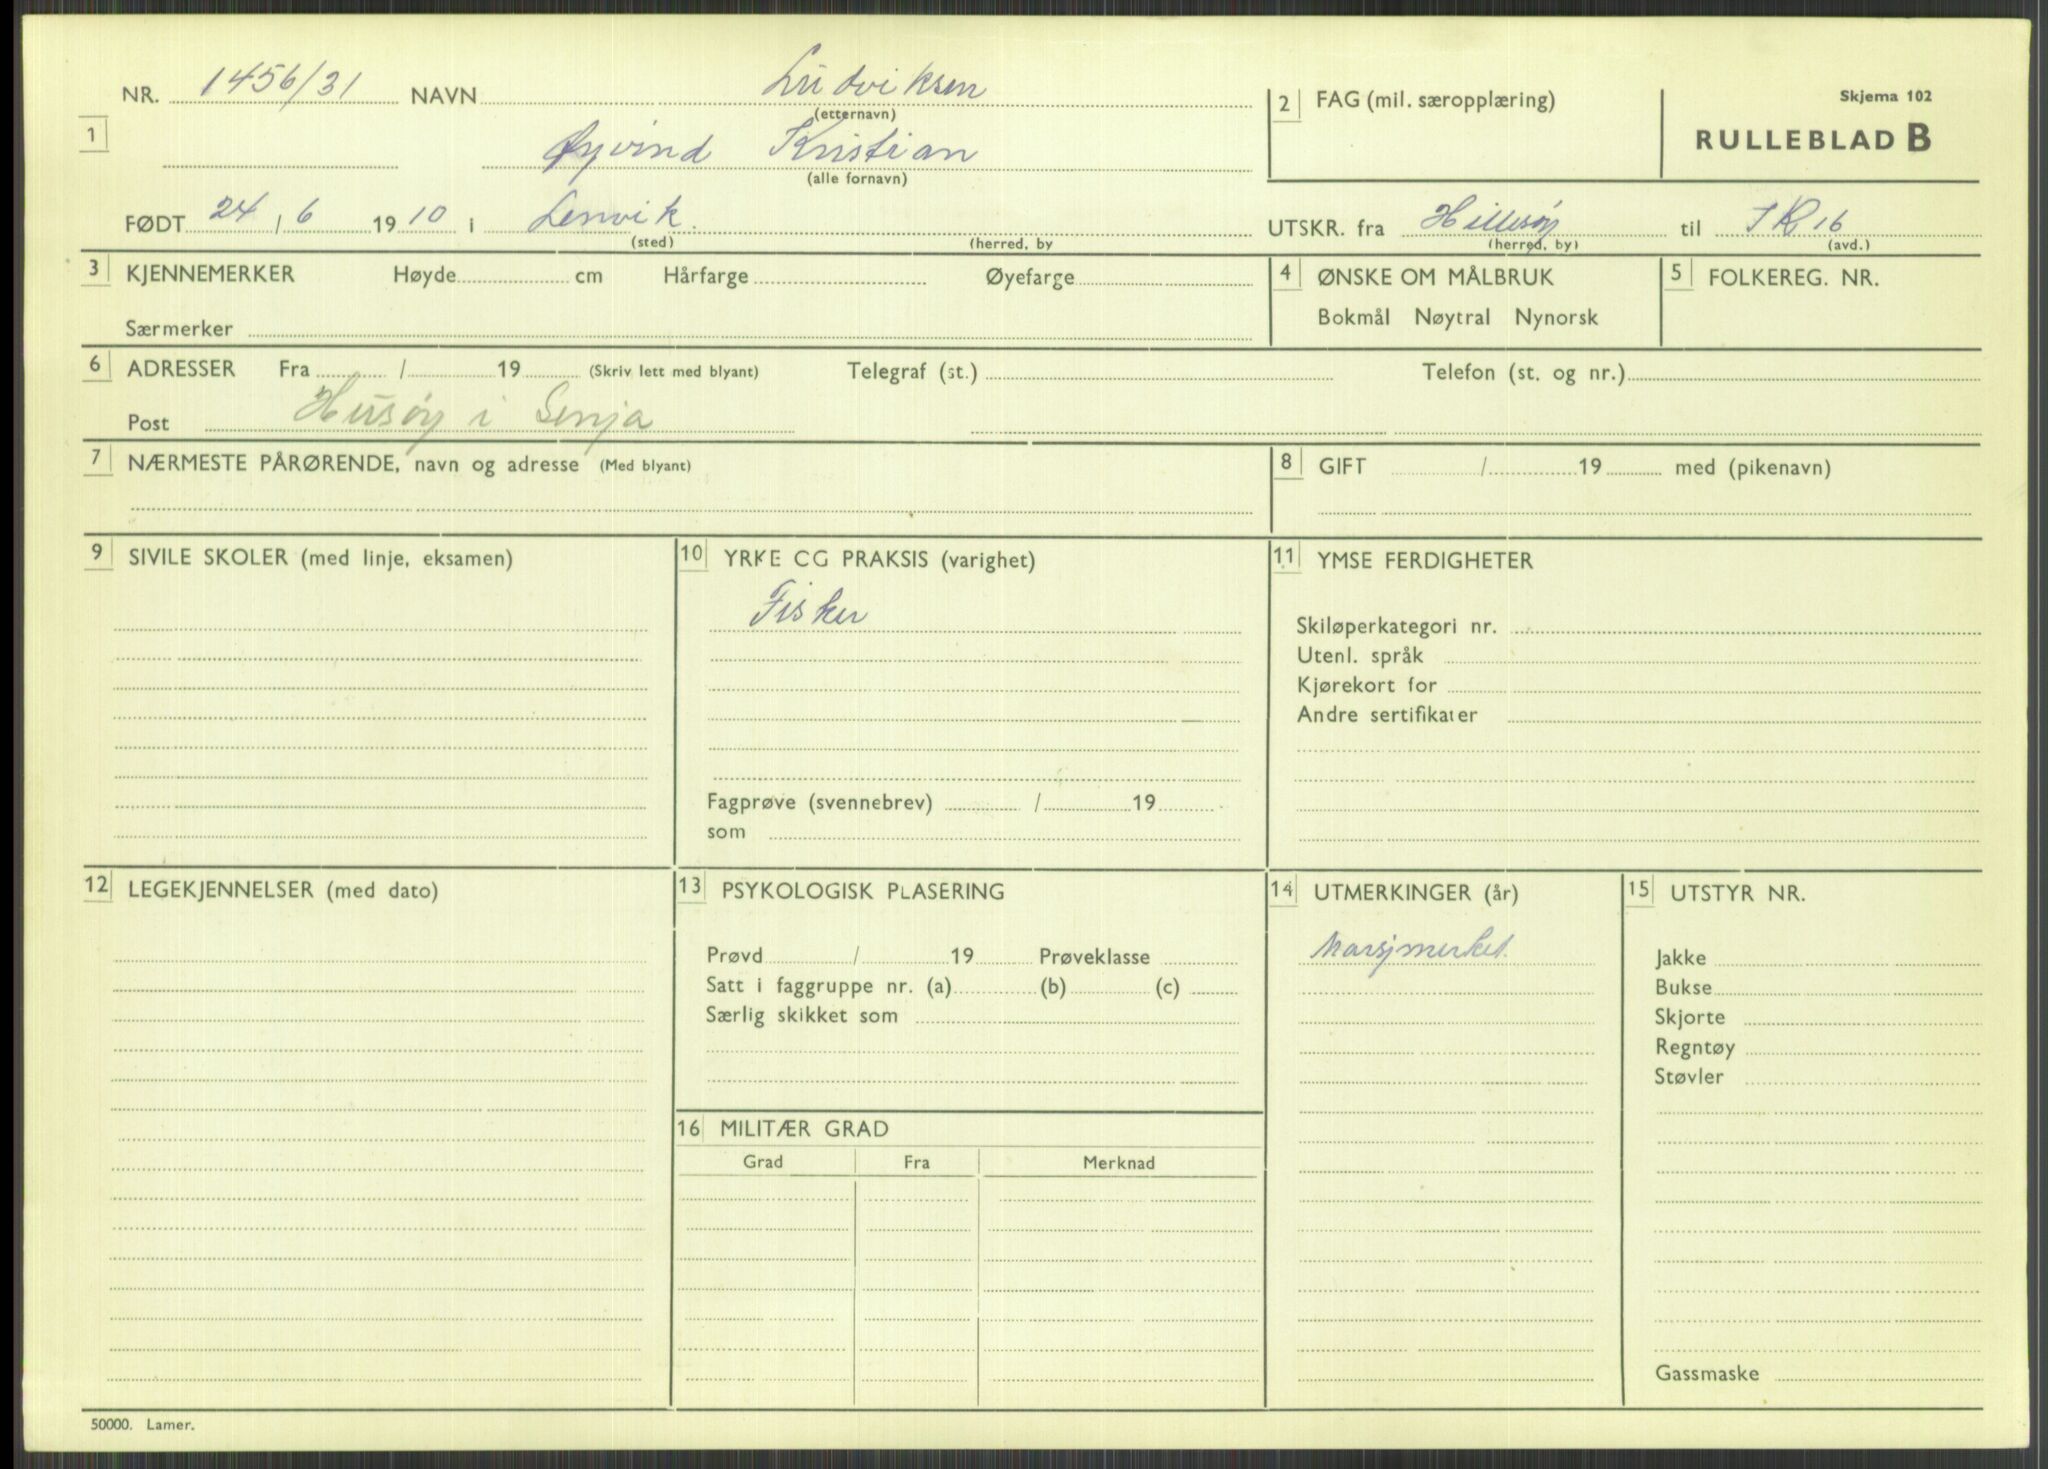 NR. 1456/31 NAVN Ludviksen
(etternavn)
1
Øyvind Kristian
(alle fornavn)
FØDT 24 / 6 1910 i Lenvik.
(sted) (herred, by
2 FAG (mil. særopplæring)
Skjema 102
RULLEBLAD B
UTSKR. fra Hillesøy til IR 16
(herred, by) (avd.)
3 KJENNEMERKER Høyde cm Hårfarge Øyefarge
Særmerker
4 ØNSKE OM MÅLBRUK
Bokmål Nøytral Nynorsk
5 FOLKEREG. NR.
6 ADRESSER Fra / 19 (Skriv lett med blyant) Telegraf (st.) Telefon (st. og nr.)
Post Husøy i Senja
7 NÆRMESTE PÅRØRENDE, navn og adresse (Med blyant)
8 GIFT / 19 med (pikenavn)
9 SIVILE SKOLER (med linje, eksamen)
10 YRKE OG PRAKSIS (varighet)
Fisker
Fagprøve (svennebrev) / 19
som
11 YMSE FERDIGHETER
Skiløperkategori nr.
Utenl. språk
Kjørekort for
Andre sertifikater
12 LEGEKJENNELSER (med dato)
13 PSYKOLOGISK PLASERING
Prøvd / 19 Prøveklasse
Satt i faggruppe nr. (a) (b) (c)
Særlig skikket som
14 UTMERKINGER (år)
Marsjmerket.
15 UTSTYR NR.
Jakke
Bukse
Skjorte
Regntøy
Støvler
Gassmaske
16 MILITÆR GRAD
Grad Fra Merknad
50000. Lamer.